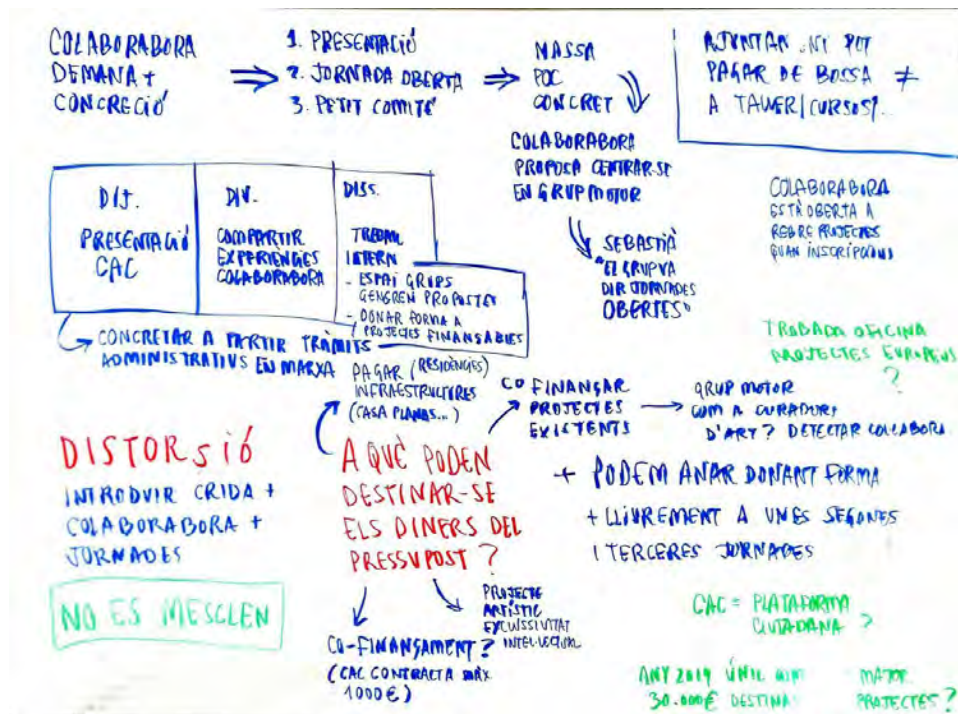 COLABORABORA
DEMANA +
CONCRECIÓ
1. PRESENTACIÓ
2. JORNADA OBERTA
3. PETIT COMITÉ
MASSA
POC
CONCRET
COLABORABORA
PROPOSA CENTRAR-SE
EN GRUP MOTOR
SEBASTIÀ
"EL GRUP VA
DIR JORNADES
OBERTES"
AJUNTAN. NI POT
PAGAR DE BOSSA ≠
A TALLER/CURSOS/.
COLABORABORA
ESTÀ OBERTA A
REBRE PROJECTES
TROBADA OFICINA
PROJECTES EUROPEUS
?
DIJ.
PRESENTACIÓ
CAC
DIV.
COMPARTIR
EXPERIENCES
COLABORABORA
DISS.
TREBALL
INTERN
- ESPAI GRUPS
GENEREN PROPOSTES
- DONAR FORMA A
PROJECTES FINANÇABLES
CONCRETAR A PARTIR TRÀMITS
ADMINISTRATIUS EN MARXA
PAGAR (RESIDÈNCIES)
INFRAESTRUCTURES
(CASA PLANAS...)
CO FINANÇAR
PROJECTES
EXISTENTS
GRUP MOTOR
COM A CURADORS
D'ART? DETECTAR COL·LABORA
DISTORSIÓ
INTRODUIR CRIDA +
COLABORABORA +
JORNADES
NO ES MESCLEN
A QUÈ PODEN
DESTINAR-SE
ELS DINERS DEL
PRESSUPOST?
+ PODEM ANAR DONANT FORMA
+ LLIUREMENT A UNES SEGONES
I TERCERES JORNADES
PROJECTE
ARTÍSTIC
EXCLUSSIVITAT
INTEL·LECTUAL
CO-FINANÇAMENT?
(CAC CONTRACTA MÀX
1000€)
CAC = PLATAFORMA
CIUTADANA ?
ANY 2019 ÚNIC
30.000€ DESTINA
PROJECTES?